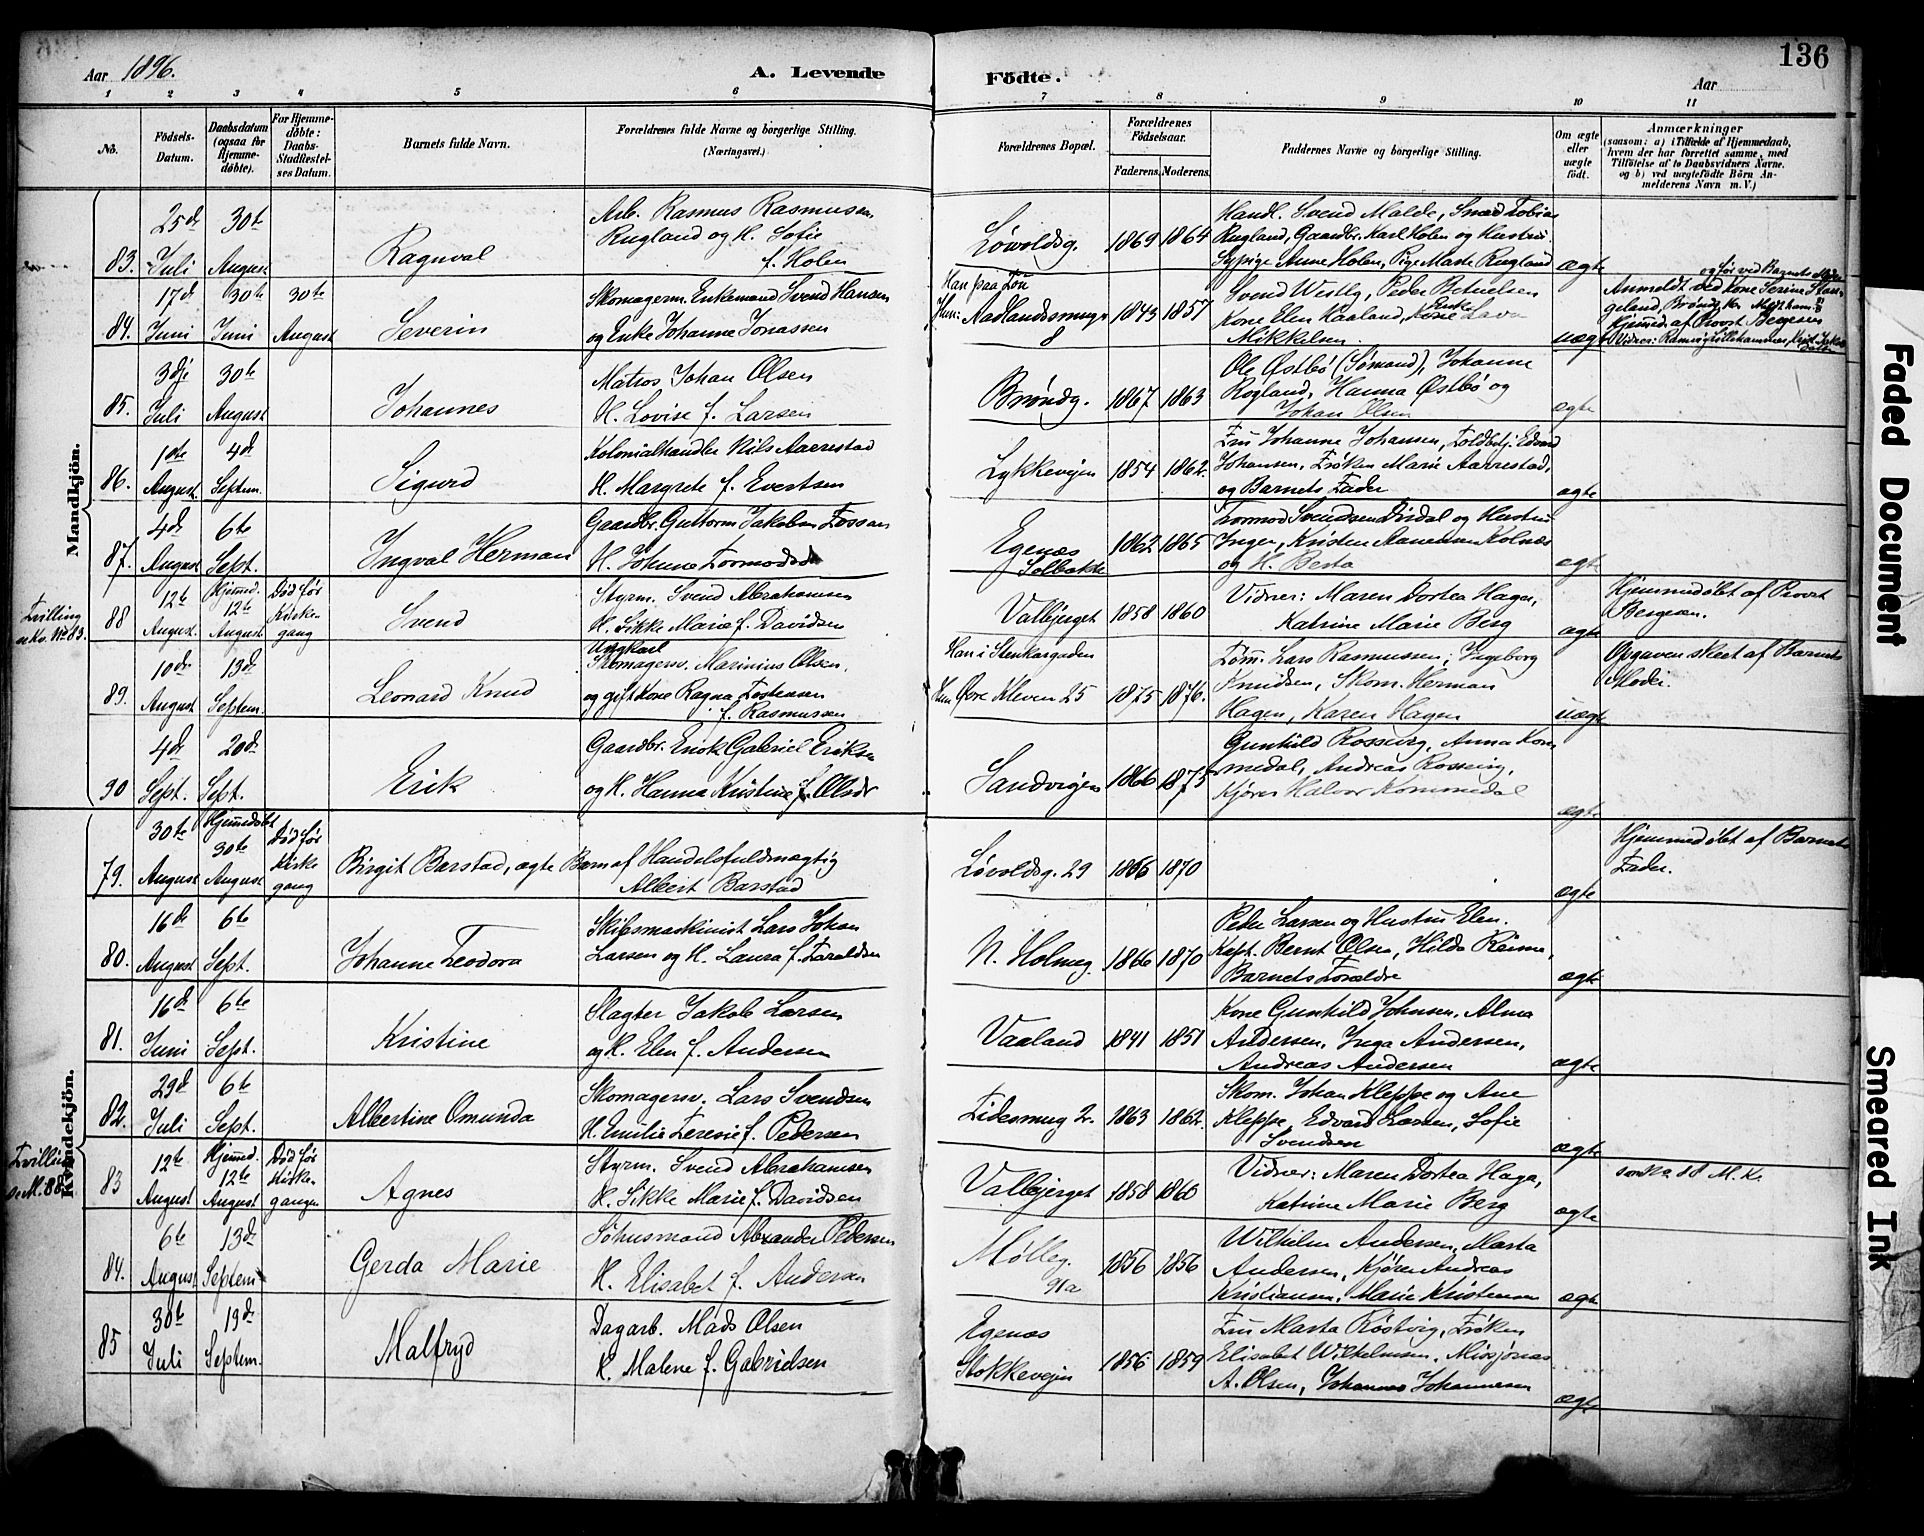 Aar 1896.
A. Levende
Födte.
Aar
136
1 2 3 4 5 6 7 8 9 10 11
No.
Födsels-Datum.
Daabsdatum (ogsaa for Hjemme-döbte).
For Hjemme-döbte: Daabs-Stadfæstel-ses Datum.
Barnets fulde Navn.
Forældrenes fulde Navne og borgerlige Stilling.
(Næringsvei.)
Forældrenes Bopæl.
Forældrenes Födselsaar.
Faderens. Moderens.
Faddernes Navne og borgerlige Stilling.
Om ægte eller uægte födt.
Anmærkninger
(saasom: a) i Tilfælde af Hjemmedaab,
hvem der har forrettet samme, med
Tilföielse af to Daabsvidners Navne.
og b) ved uægtefödte Börn An-
melderens Navn m. V.)
Mandkjön.
83. 25de Juli 30te August Ragnval
Arb. Rasmus Rasmussen
Rugland og H. Sofie
f. Holen
Løvoldsg. 1869 1864
Handl. Svend Malde, Smed Tobias
Rugland, Gaardbr. Karl Holen og Hustru.
Sypige Anne Holen, Pige Marte Rugland
ægte
84. 17de Juni 30te Juni 30te August Severin
Skomagerm. Enkemand Svend Hansen
og Enke Johanne Jonassen
Han paa Lou
Hun: Aadlandssmug 8 1843 1857
Svend Westly, Peder Betuelsen
Kone Elen Haaland, Enke Lava
Mikkelsen.
uægte
Anmeldt ved Kone Serine Stan-
geland, Brøndg.
Hjemmed. af Provst Bergesen
85. 3dje Juli 30te August Johannes
Matros Johan Olsen
H. Lovise f. Larsen
Brøndg. 1867 1863
Ole Østbø (Sømand), Johanne
Rogland, Hanna Østbø og
Johan Olsen
ægte
86. 1ste August 4de Septem. Sigurd
Kolonialhandler Nils Aarrestad
H. Margrete f. Evertsen
Lykkeveien 1854 1862.
Fru Johanne Johansen, Toldbetj. Edvard
Johansen, Frøken Marie Aarrestad,
og Barnets Fader
ægte
87. 4de August 6te Sept. Ingval Herman
Gaardbr. Guttorm Jakobsen Fossan
H. Johanne Tormodsd.
Egenæs
Solbakke 1862 1865
Tormod Svendsen Dirdal og Hustru
Inger, Kristen Kolnes
og H. Berta
ægte
Tvilling
88 12te August Hjemmed. 12te August Død før Kirke-gang Svend
Styrm. Svend Abrahamsen
H. Sikke Marie f. Davidsen
Valbjerget 1858 1860
Vidner: Maren Dortea Haga,
Katrine Marie Berg
ægte
Hjemmedøbt af Provst
Bergesen.
89. 10de August 13de Septem. Leonard Knud
Ungkarl
Skomagersv. Marinius Olsen.
og gift Kone Ragna Tostensen
f. Rasmussen
Han i Stenkargaden
Hun Øvre Kleven 25 1875 1876.
Tøm. Lars Rasmussen, Ingeborg
Knudsen, Skom. Herman
Hagen, Karen Hagen
uægte
Opgaven skeet af Barnets
Moder.
90 4de Sept. 20de Sept. Erik
Gaardbr. Erik Gabriel Eriksen
og H. Hanna Kristine f. Olsdr
Sandvigen 1866 1875
Gunhild Rossevig, Anna Kom-
medal, Andreas Rossevig,
Kjører Halvor Kommedal
ægte
Kvindekjön.
79. 30te August Hjemmedøbt 30te August Død før Kirke gang Birgit Barstad, ægte Barn af Handelsfuldmægtig
Albert Barstad
Løvoldsg. 29 1866 1870
ægte
Hjemmedøbt af Barnets
Fader.
80. 16de August 6te Sept. Johanne Teodora
Skibsmaskinist Lars Johan
Larsen og H. Laura f. Taraldsen
N. Holmeg 1866 1870
Peder Larsen og Hustru Elen.
Kapt. Bernt Olsen, Hilda Reime,
Barnets Forældre
ægte
81. 16de Juni 6te Sept. Kristine
Slagter Jakob Larsen
og H. Elen f. Andersen
Vaaland 1841 1851
Kone Gunhild Johnsen, Alma
Andersen, Inga Andersen,
Andreas Andersen
ægte
82. 29de Juli 6te Sept. Albertine Omunda
Skomagersv. Lars Svendsen
H. Emilie Teresie f. Pedersen
Fidesmug 2. 1863 1862.
Skom. Johan Kleppe og Ane
Kleppe, Edvard Larsen, Sofie
Svendsen
ægte
Tvilling
83 12te August Hjemmed. 12te August Død før Kirke-gangen Agnes
Styrm. Svend Abrahamsen
H. Sikke Marie f. Davidsen
Valbjerget 1858 1860
Vidner: Maren Dortea Haga,
Katrine Marie Berg
ægte
som No 88 M. K.
84. 6te August 13de Septem Gerda Marie
Sjøhusmand Alexander Pedersen
H. Elisabet f. Andersen
Mølleg.
91a 1856 1856
Wilhelm Andersen, Marta
Andersen, Kjører Andreas
Kristiansen, Marie Kristensen
ægte
85 30te Juli 19de Septem. Malfryd
Dagarb. Mads Olsen
H. Malene f. Gabrielsen
Egenæs
Stokkeveien 1856 1859
Fru Marta Røstvig, Frøken
Elisabet Wilhelmsen, Missjonær
A. Olsen, Johannes Johannesen
ægte
Faded Document
Smeared Ink